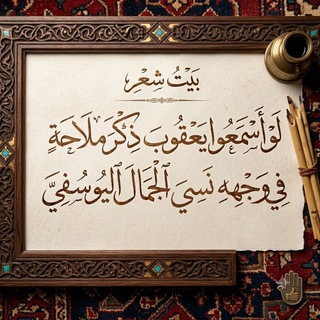 بَيْتُ شِعْرٍ
لَوْ أَسْمَعُوا يَعْقُوبَ ذِكْرَ مَلَاحَةٍ
فِي وَجْهِهِ نَسِيَ الْجَمَالَ الْيُوسُفِيَّ